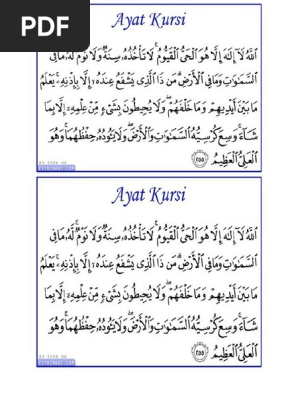 PDF
Ayat Kursi
اللَّهُ لَا إِلَٰهَ إِلَّا هُوَ الْحَيُّ الْقَيُّومُ ۚ لَا تَأْخُذُهُ سِنَةٌ وَلَا نَوْمٌ ۚ لَهُ مَا فِي
السَّمَاوَاتِ وَمَا فِي الْأَرْضِ ۗ مَنْ ذَا الَّذِي يَشْفَعُ عِنْدَهُ إِلَّا بِإِذْنِهِ ۚ يَعْلَمُ
مَا بَيْنَ أَيْدِيهِمْ وَمَا خَلْفَهُمْ ۖ وَلَا يُحِيطُونَ بِشَيْءٍ مِنْ عِلْمِهِ إِلَّا بِمَا
شَاءَ ۚ وَسِعَ كُرْسِيُّهُ السَّمَاوَاتِ وَالْأَرْضَ ۖ وَلَا يَئُودُهُ حِفْظُهُمَا ۚ وَهُوَ
الْعَلِيُّ الْعَظِيمُ ٢٥٥
AS SEEN ON
Ayat Kursi
اللَّهُ لَا إِلَٰهَ إِلَّا هُوَ الْحَيُّ الْقَيُّومُ ۚ لَا تَأْخُذُهُ سِنَةٌ وَلَا نَوْمٌ ۚ لَهُ مَا فِي
السَّمَاوَاتِ وَمَا فِي الْأَرْضِ ۗ مَنْ ذَا الَّذِي يَشْفَعُ عِنْدَهُ إِلَّا بِإِذْنِهِ ۚ يَعْلَمُ
مَا بَيْنَ أَيْدِيهِمْ وَمَا خَلْفَهُمْ ۖ وَلَا يُحِيطُونَ بِشَيْءٍ مِنْ عِلْمِهِ إِلَّا بِمَا
شَاءَ ۚ وَسِعَ كُرْسِيُّهُ السَّمَاوَاتِ وَالْأَرْضَ ۖ وَلَا يَئُودُهُ حِفْظُهُمَا ۚ وَهُوَ
الْعَلِيُّ الْعَظِيمُ ٢٥٥
AS SEEN ON